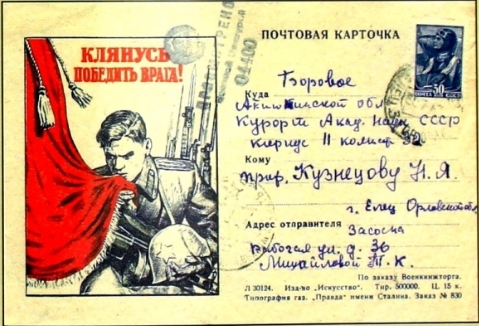 КЛЯНУСЬ
ПОБЕДИТЬ ВРАГА!
ПРОСМОТРЕНО
04400
ПОЧТОВАЯ КАРТОЧКА
30
ПОЧТА СССР
Куда Боровое
Акмолинской обл
Курорт Акад. Наук СССР
корпус II комн
Кому
проф. Кузнецову Н. Я.
г. Елец Орловской обл
Адрес отправителя Засосна
Рабочая ул. д. 36
Михайловой Т. К.
По заказу Военкнижторга.
Л 30124. Изд-во „Искусство". Тир. 500000. Ц. 15 к.
Типография газ. „Правда" имени Сталина. Заказ № 830